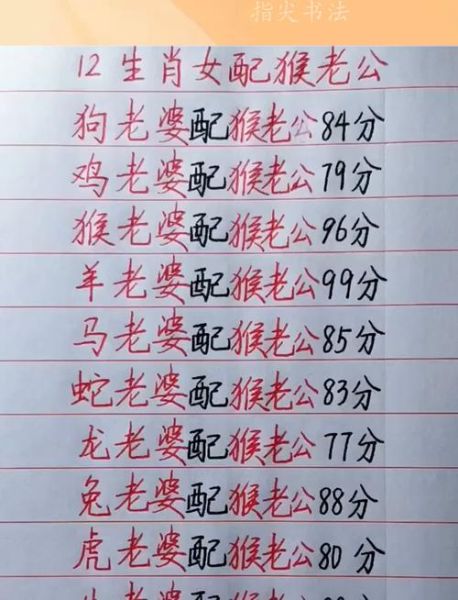 指尖书法
12生肖女配猴老公
狗老婆配猴老公84分
鸡老婆配猴老公79分
猴老婆配猴老公96分
羊老婆配猴老公99分
马老婆配猴老公85分
蛇老婆配猴老公83分
龙老婆配猴老公77分
兔老婆配猴老公88分
虎老婆配猴老公80分